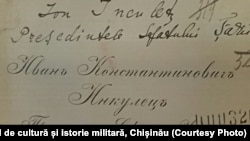 Ion Inculeț
Președintele Sfatului Țării
Иванъ Константиновичъ
Инкулецъ
l de cultură și istorie militară, Chișinău (Courtesy Photo)